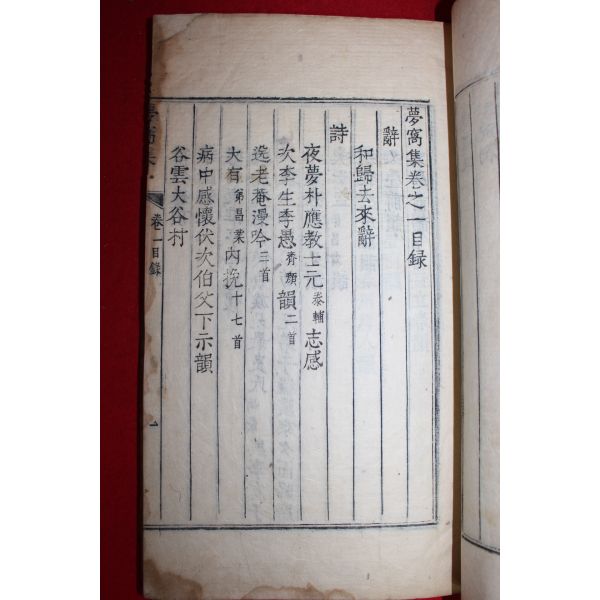 夢窩集卷之一目録
辭
和歸去來辭
詩
夜夢朴應教士元泰輔志感
次李生季愚齊顔韻二首
逸老菴漫吟三首
大有第昌業內挽十七首
病中感懷伏次伯父下示韻
谷雲大谷村
夢窩集
卷一目錄
一